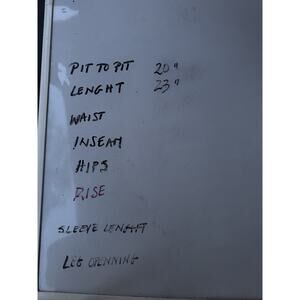 PIT TO PIT 20"
LENGHT 23"
WAIST
INSEAM
HIPS
RISE
SLEEVE LENGHT
LEG OPENNING